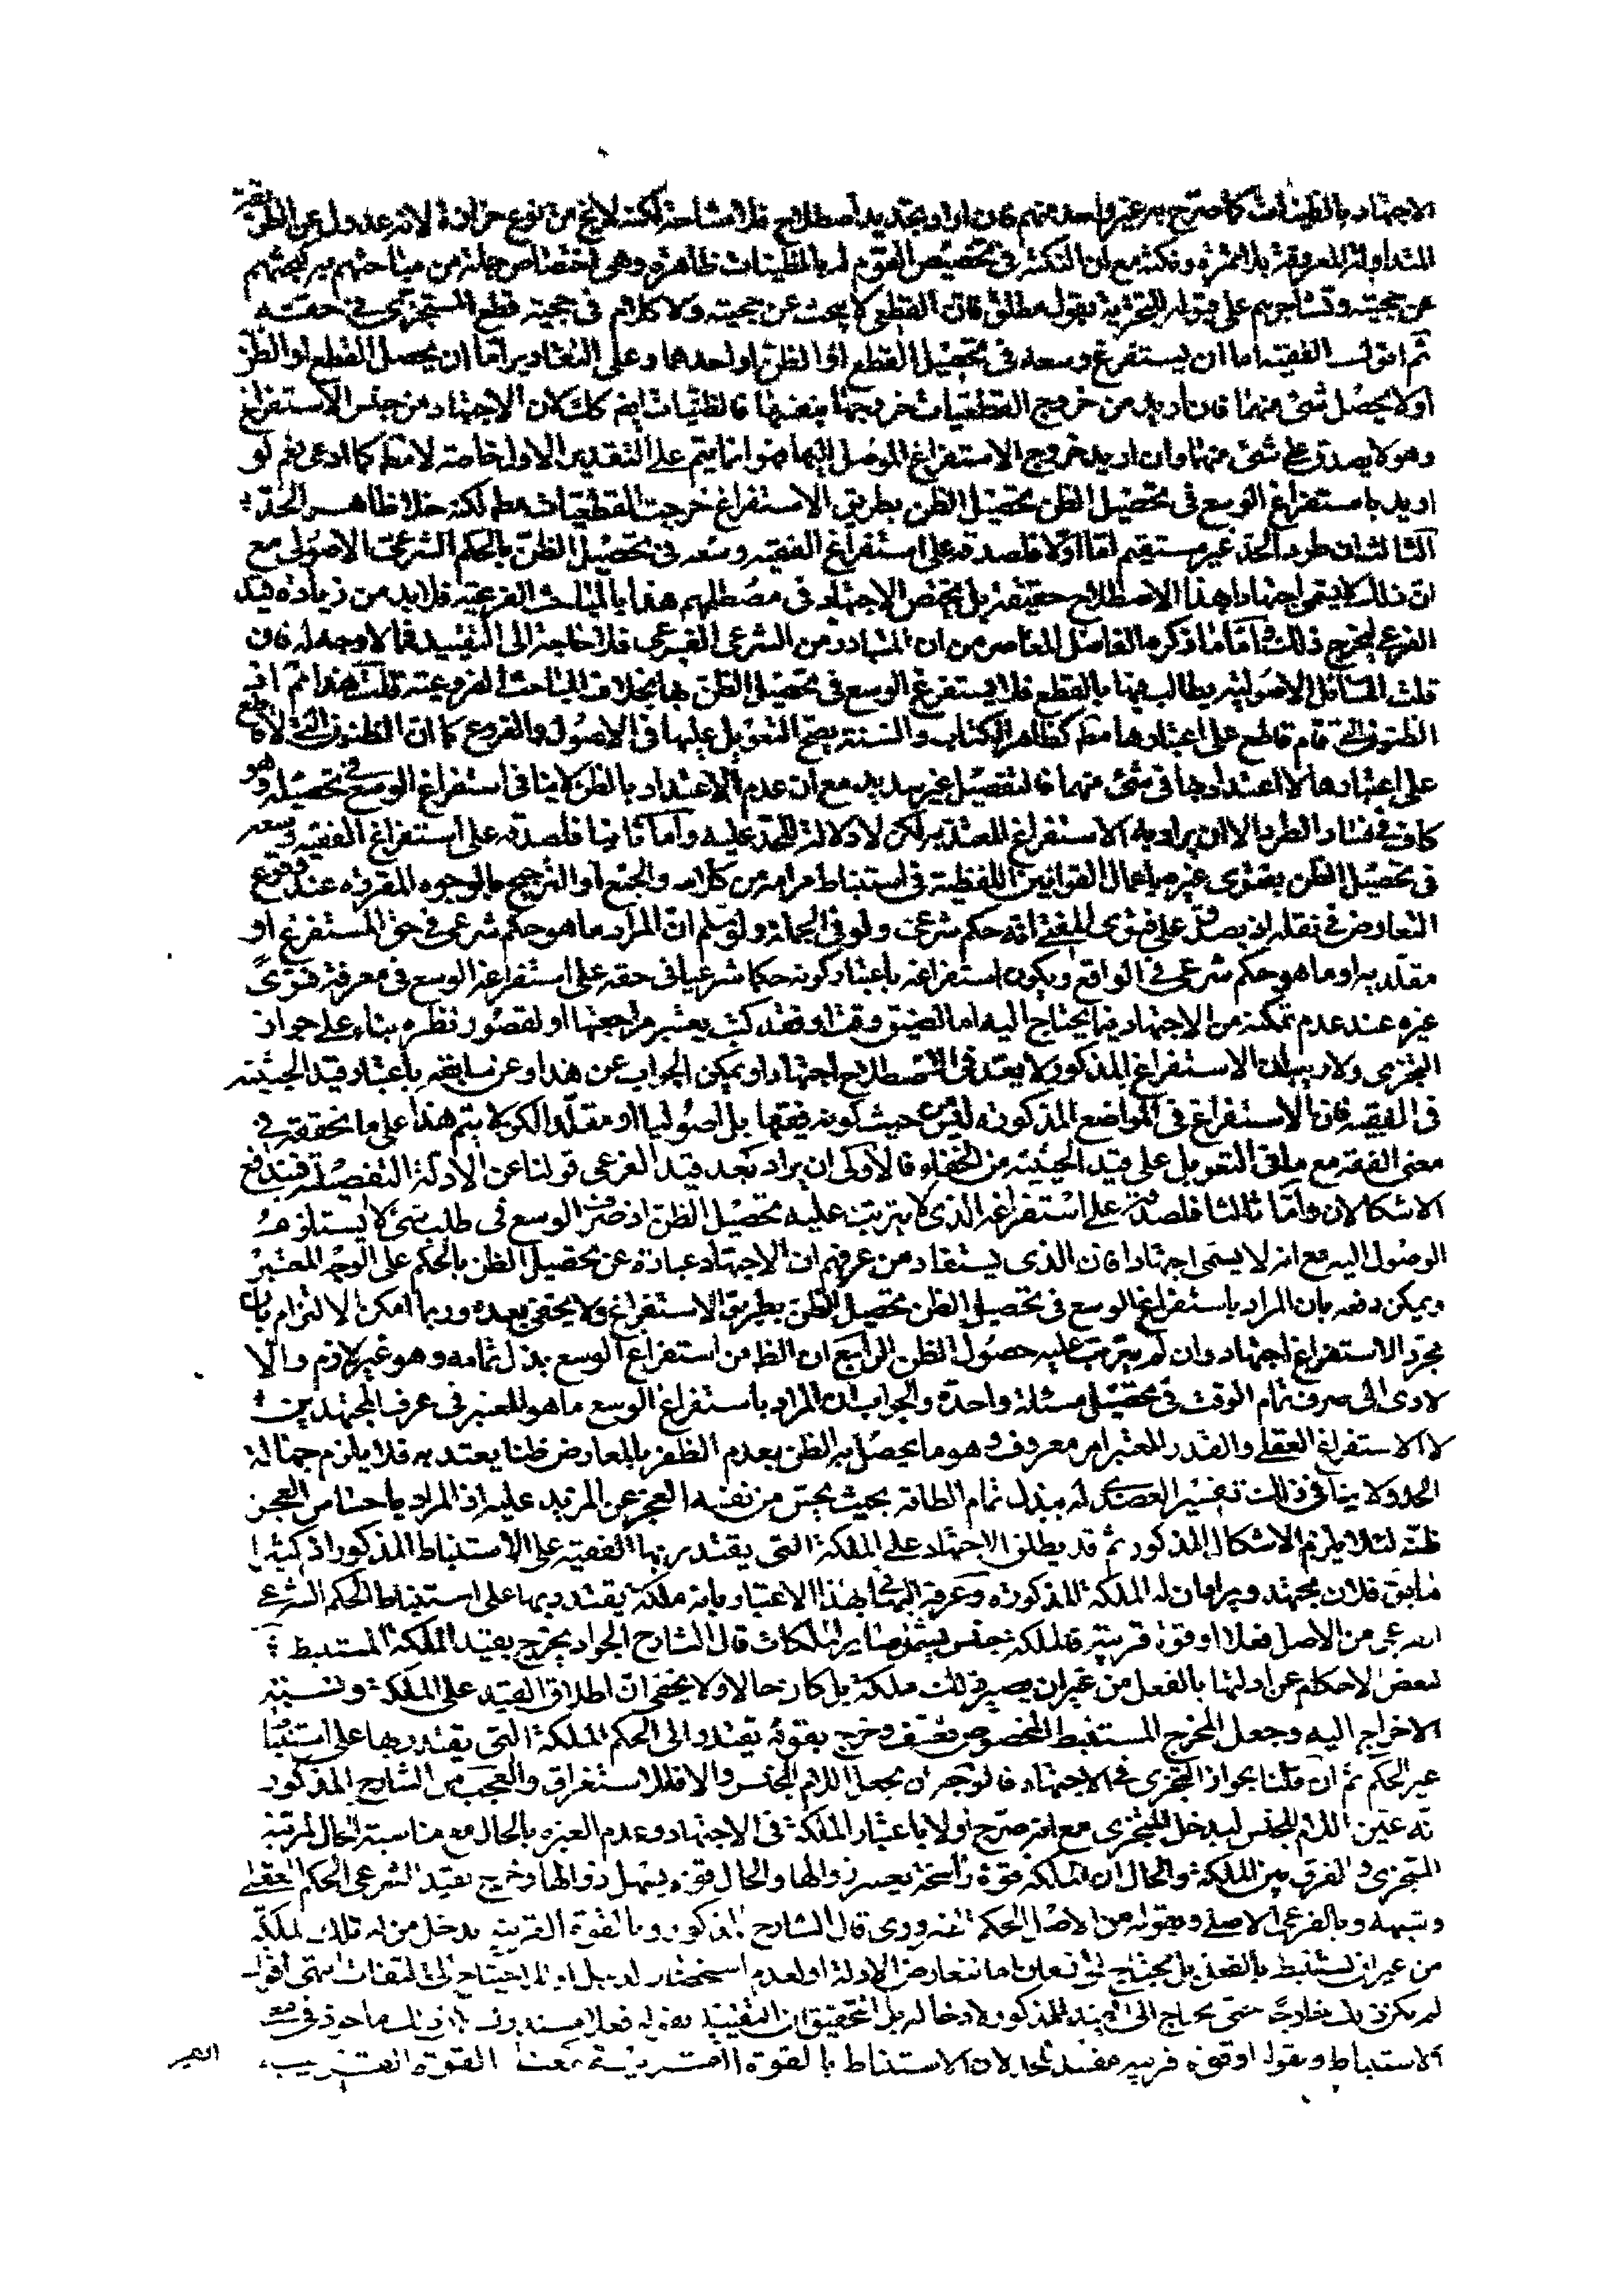 الاجتهاد بالظنيات كما صرح به غير واحد منهم فان اراد تجديد اصطلاح فلا مشاحة لكنه لا يخ من نوع حزازة لانه عدول عن الطريقة
المتداولة المعروفة بلا ثمرة ونكتة مع ان النكتة في تخصيص القوم له بالظنيات ظاهرة وهي اختصاص جملة من مباحثهم به كبحثهم
عن حجيته وتشاجرهم على قبوله للتجزية بقول مطلق فان القطعي لا يبحث عن حجيته ولا كلام في حجية قطع المتجزي في حقه
ثم اقول الفقيه اما ان يستفرغ وسعه في تحصيل القطع او الظن او احدهما وعلى التقادير اما ان يحصل القطع او الظن
او لا يحصل شئ منهما فان اريد من خروج القطعيات خروجها بنفسها فالظنيات ايضا كك لان الاجتهاد من جنس الاستفراغ
وهو لا يصدق على شئ منهما وان اريد خروج الاستفراغ الموصل اليها فهو انما يتم على التقدير الاول خاصة لا مط كما ادعى نعم لو
اريد باستفراغ الوسع في تحصيل الظن تحصيل الظن بطريق الاستفراغ خرجت القطعيات مط لكنه خلاف ظاهر الحد
الثالث ان طرد الحد غير مستقيم اما اولا فلصدقه على استفراغ الفقيه وسعه في تحصيل الظن بالحكم الشرعي الاصولي مع
ان ذلك لا يسمى اجتهادا بهذا الاصطلاح حقيقة بل يختص الاجتهاد في مصطلحهم هذا بالمباحث الفرعية فلا بد من زيادة قيد
الفرعي ليخرج ذلك واما ما ذكره الفاضل المعاصر من ان المتبادر من الشرعي الفرعي فلا حاجة الى التقييد فما لا وجه له فان
قلت المسائل الاصولية يطالب فيها بالقطع فلا يستفرغ الوسع في تحصيل الظن بها بخلاف المباحث الفرعية قلت هذا انما
الظنون التي قام قاطع على اعتبارها مط كظاهر الكتاب والسنة يصح التعويل عليها في الاصول والفروع كما ان الظنون التي لا قاطع
على اعتبارها لا اعتداد بها في شئ منهما فالتفصيل غير سديد مع ان عدم الاعتداد بالظن لا ينافي استفراغ الوسع في تحصيله وهو
كاف في فساد الطرد الا ان يراد به الاستفراغ المعتد به لكن لا دلالة للحد عليه واما ثانيا فلصدقه على استفراغ الفقيه وسعه
في تحصيل الظن بفتوى غيره باعمال القوانين اللفظية في استنباط مرامه من كلامه والجمع او الترجيح بالوجوه المقررة عند وقوع
التعارض في نقله اذ يصدق على فتوى المفتي انه حكم شرعي ولو في الجملة ولو سلم ان المراد ما هو حكم شرعي في حق المستفرغ او
مقلديه او ما هو حكم شرعي في الواقع ويكون استفراغه باعتبار كونه حكما شرعيا في حقه على استفراغه الوسع في معرفة فتوى
غيره عند عدم تمكنه من الاجتهاد فيما يحتاج اليه اما لضيق وقت او فقد كتب يعتبر مراجعتها او لقصور نظره بناء على جواز
التجزي ولا ريب ان الاستفراغ المذكور لا يعد في الاصطلاح اجتهادا ويمكن الجواب عن هذا وعن سابقه باعتبار قيد الحيثية
في الفقيه فان الاستفراغ في المواضع المذكورة ليس من حيث كونه فقيها بل اصوليا او مقلدا لكن لا يتم هذا على ما نحققه في
معنى الفقه مع ما في التعويل على قيد الحيثية من الخفاء فالاولى ان يراد بعد قيد الفرعي قولنا عن الادلة التفصيلية فيندفع
الاشكالان واما ثالثا فلصدقه على استفراغه الذي لا يترتب عليه تحصيل الظن اذ صرف الوسع في طلب شئ لا يستلزم
الوصول اليه مع انه لا يسمى اجتهادا فان الذي يستفاد من عرفهم ان الاجتهاد عبارة عن تحصيل الظن بالحكم على الوجه المعتبر
ويمكن دفعه بان المراد باستفراغ الوسع في تحصيل الظن تحصيل الظن بطريق الاستفراغ ولا يخفى بعده وربما امكن الالتزام بان
مجرد الاستفراغ اجتهاد وان لم يترتب عليه حصول الظن الرابع ان الظ من استفراغ الوسع بذل تمامه وهو غير لازم والا
لادى الى صرف تمام الوقت في تحصيل مسئلة واحدة والجواب ان المراد باستفراغ الوسع ما هو المعتبر في عرف المجتهدين
لا الاستفراغ العقلي والقدر المعتبر امر معروف وهو ما يحصل به الظن بعدم الظفر بالمعارض ظنا يعتد به فلا يلزم جهالة
الحد ولا ينافي ذلك تفسير العضدي له ببذل تمام الطاقة بحيث يحس من نفسه العجز عن المزيد عليه اذ المراد باحساس العجز
ظنه لئلا يلزم الاشكال المذكور ثم قد يطلق الاجتهاد على الملكة التي يقتدر بها الفقيه على الاستنباط المذكور اذ كثيرا
ما يق فلان مجتهد ويراد ان له الملكة المذكورة وعرفه البهائي بهذا الاعتبار بانه ملكة يقتدر بها على استنباط الحكم الشرعي
الفرعي من الاصل فعلا او قوة قريبة فالملكة جنس يشمل سائر الملكات قال الشارح الجواد يخرج بقيد الملكة المستنبط
لبعض الاحكام عن ادلتها بالفعل من غير ان يصير ذلك ملكة بل كان حالا ولا يخفى ان اطلاق القيد على الملكة ونسبة
الاخراج اليه وجعل المخرج المستنبط المخصوص تعسف وخرج بقوله يقتدر الى الحكم الملكة التي يقتدر بها على استنباط
غير الحكم ثم ان قلنا بجواز التجزي في الاجتهاد فالوجه ان يجعل اللام للجنس والا فللاستغراق والعجب من الشارح المذكور
انه عين اللام للجنس ليدخل المتجزي مع انه صرح اولا باعتبار الملكة في الاجتهاد وعدم العبرة بالحال مع مناسبة الحال لمرتبة
المتجزي والفرق بين الملكة والحال ان الملكة قوة راسخة يعسر زوالها والحال قوة يسهل زوالها وخرج بقيد الشرعي الحكم العقلي
وشبهه وبالفرعي الاصلي وبقوله من الاصل الحكم الضروري قال الشارح المذكور وبالقوة القريبة يدخل من له تلك الملكة
من غير ان يستنبط بالفعل بل يحتاج الى زمان اما لتعارض الادلة او لعدم استحضار الدليل او الاحتياج الى التفات انتهى اقول
لم يكن ذلك خارجا حتى يحتاج الى القيد المذكور لادخاله بل التحقيق ان التقييد بقوله فعلا مستدرك لان ذلك ماخوذ في
الاستنباط وبقوله او قوة قريبة مفسد للحد لان الاستنباط بالقوة القريبة معناه القوة القريبة